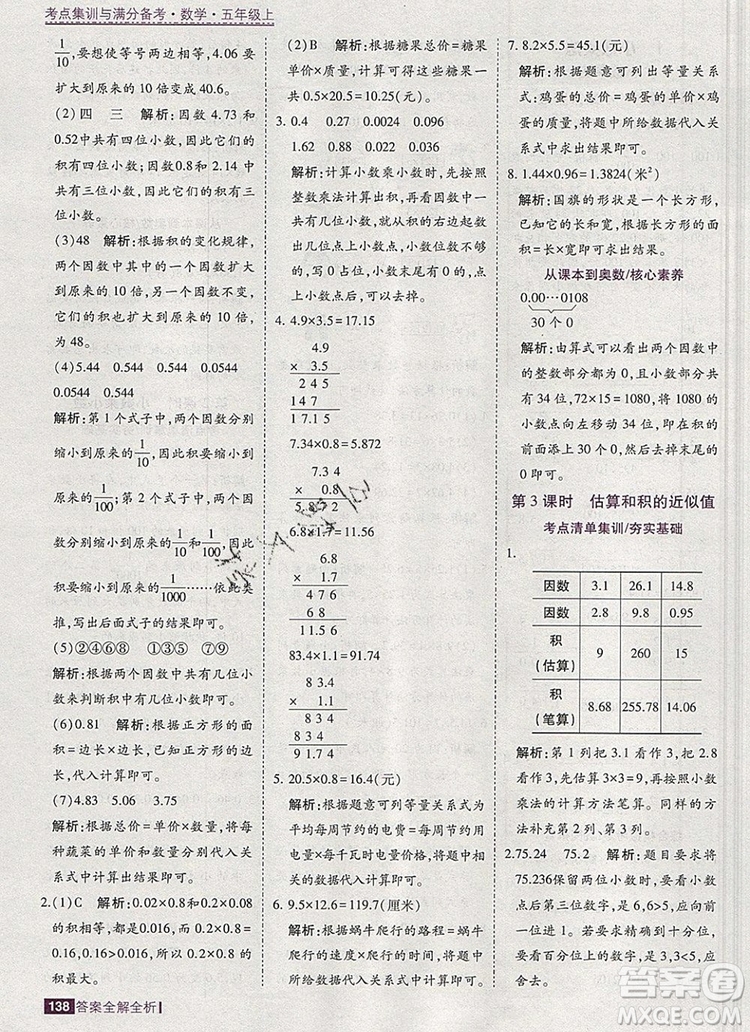 考点集训与满分备考·数学·五年级上
1/10,要想使等号成立,4.06 要
扩大到原来的 10 倍变成 40.6。
(2)四 三 解析:因数 4.73 和
0.52中共有四位小数,因此它们的
积有四位小数;0.8 和 2.14 中
共有三位小数,因此它们的积有
三位小数。
(3)48 解析:根据积的变化规律,
两个因数其中的一个因数扩大
到原来的多少倍,另一个因数不变,
积也扩大到原来的多少倍,所以
为 48。
(4)5.44 0.544 0.0544
0.0544 0.0544
解析:第 1 个式子中,两个因数分别
缩小到原来的1/10,所以积要缩
小到原来的1/100。第 2 个式子,两个
因数分别缩小到原来的1/10和1/100,
积要缩小到原来的1/1000……依此类
推,写出后面式子的结果即可。
(5)②④⑥⑧ ①③⑤ ⑦⑨
解析:根据两个因数中共有几位小
数来判断积中共有几位小数。
(6)0.81 解析:根据正方形的面
积=边长×边长,已知正方形的边
长,代入计算即可。
(7)4.83 5.06 3.75
解析:根据总价=单价×数量,将每
种蔬菜的单价和数量分别代入关
系式中计算出结果即可。
2.(1)C 解析:0.02×0.8 和 0.2×0.08
的积都是 0.016,0.2×0.8 的积是
0.16,0.16>0.016,所以 0.2×0.8 的
积最大。
138 答案全解全析
(2)B 解析:根据糖果总价=糖果
单价×质量,计算可得这些糖果一
共 0.5×20.5=10.25(元)。
3. 0.4 0.27 0.0024 0.096
1.62 0.88 0.088
解析:计算小数乘小数,先按照
整数乘法计算出积,再看因数中
有几位小数,就从积的右边起数
出几位点上小数点,位数不够的
用 0 补足,小数末尾有 0 的,点
上小数点后,可以去掉。
4. 4.9×3.5=17.15
4.9
× 3.5
2 4 5
1 4 7
1 7.1 5
7.34×0.8=5.872
7.3 4
× 0.8
5.8 7 2
6.8×1.7=11.56
6.8
× 1.7
4 7 6
6 8
1 1.5 6
83.4×1.1=91.74
8 3.4
× 1.1
8 3 4
8 3 4
9 1.7 4
5. 20.5×0.8=16.4(元)
解析:根据题意可列等量关系式为
平均每周节约的电费=平均每周
节约的电×每千瓦时电费,将题中
所给数据代入关系式中计算即可。
6. 9.5×12.6=119.7(厘米)
解析:根据蜗牛爬行的路程=蜗牛
爬行的速度×爬行的时间,将题中
所给数据代入关系式中计算即可。
7. 8.2×5.5=45.1(元)
解析:根据题意可写出等量关系
式:鸡蛋的总价=鸡蛋的单价×鸡
蛋的数量,将题中的数据代入关
系式中求出结果即可。
8. 1.44×0.96=1.3824(米²)
解析:国旗的形状是一个长方形,
已知它的长和宽,根据长方形的面
积=长×宽即可求出结果。
从课本到奥数/核心素养
0.00…0108
30 个 0
解析:由算式可以看出两个因数中
的整数部分都是 0,且小数部分共
有 34 位,72×15=1080,将 1080 的
小数点向左移动 34 位,即在积的
前面添上若干个 0,再去掉末尾的
0 即可。
第 3 课时 估算和积的近似值
考点清单集训/夯实基础
1.
因数 3.1 26.1 14.8
因数 2.8 9.8 0.95
积(估算) 9 260 15
积(笔算) 8.68 255.78 14.06
解析:第 1 列把 3.1 看作 3,把 2.8
看作 3,估算 3×3=9,然后根据小数
乘法的计算方法笔算。同样的方
法补充第 2 列、第 3 列。
2.75.24 75.2 解析:根据题意,
75.236保留两位小数,四舍五入
后第三位数字,是 6,6>5,进 1 即
可。如果要精确到十分位,则需
要看百分位上的数字,是 3,3<5,应
舍去。
答案圈
MXQE.COM